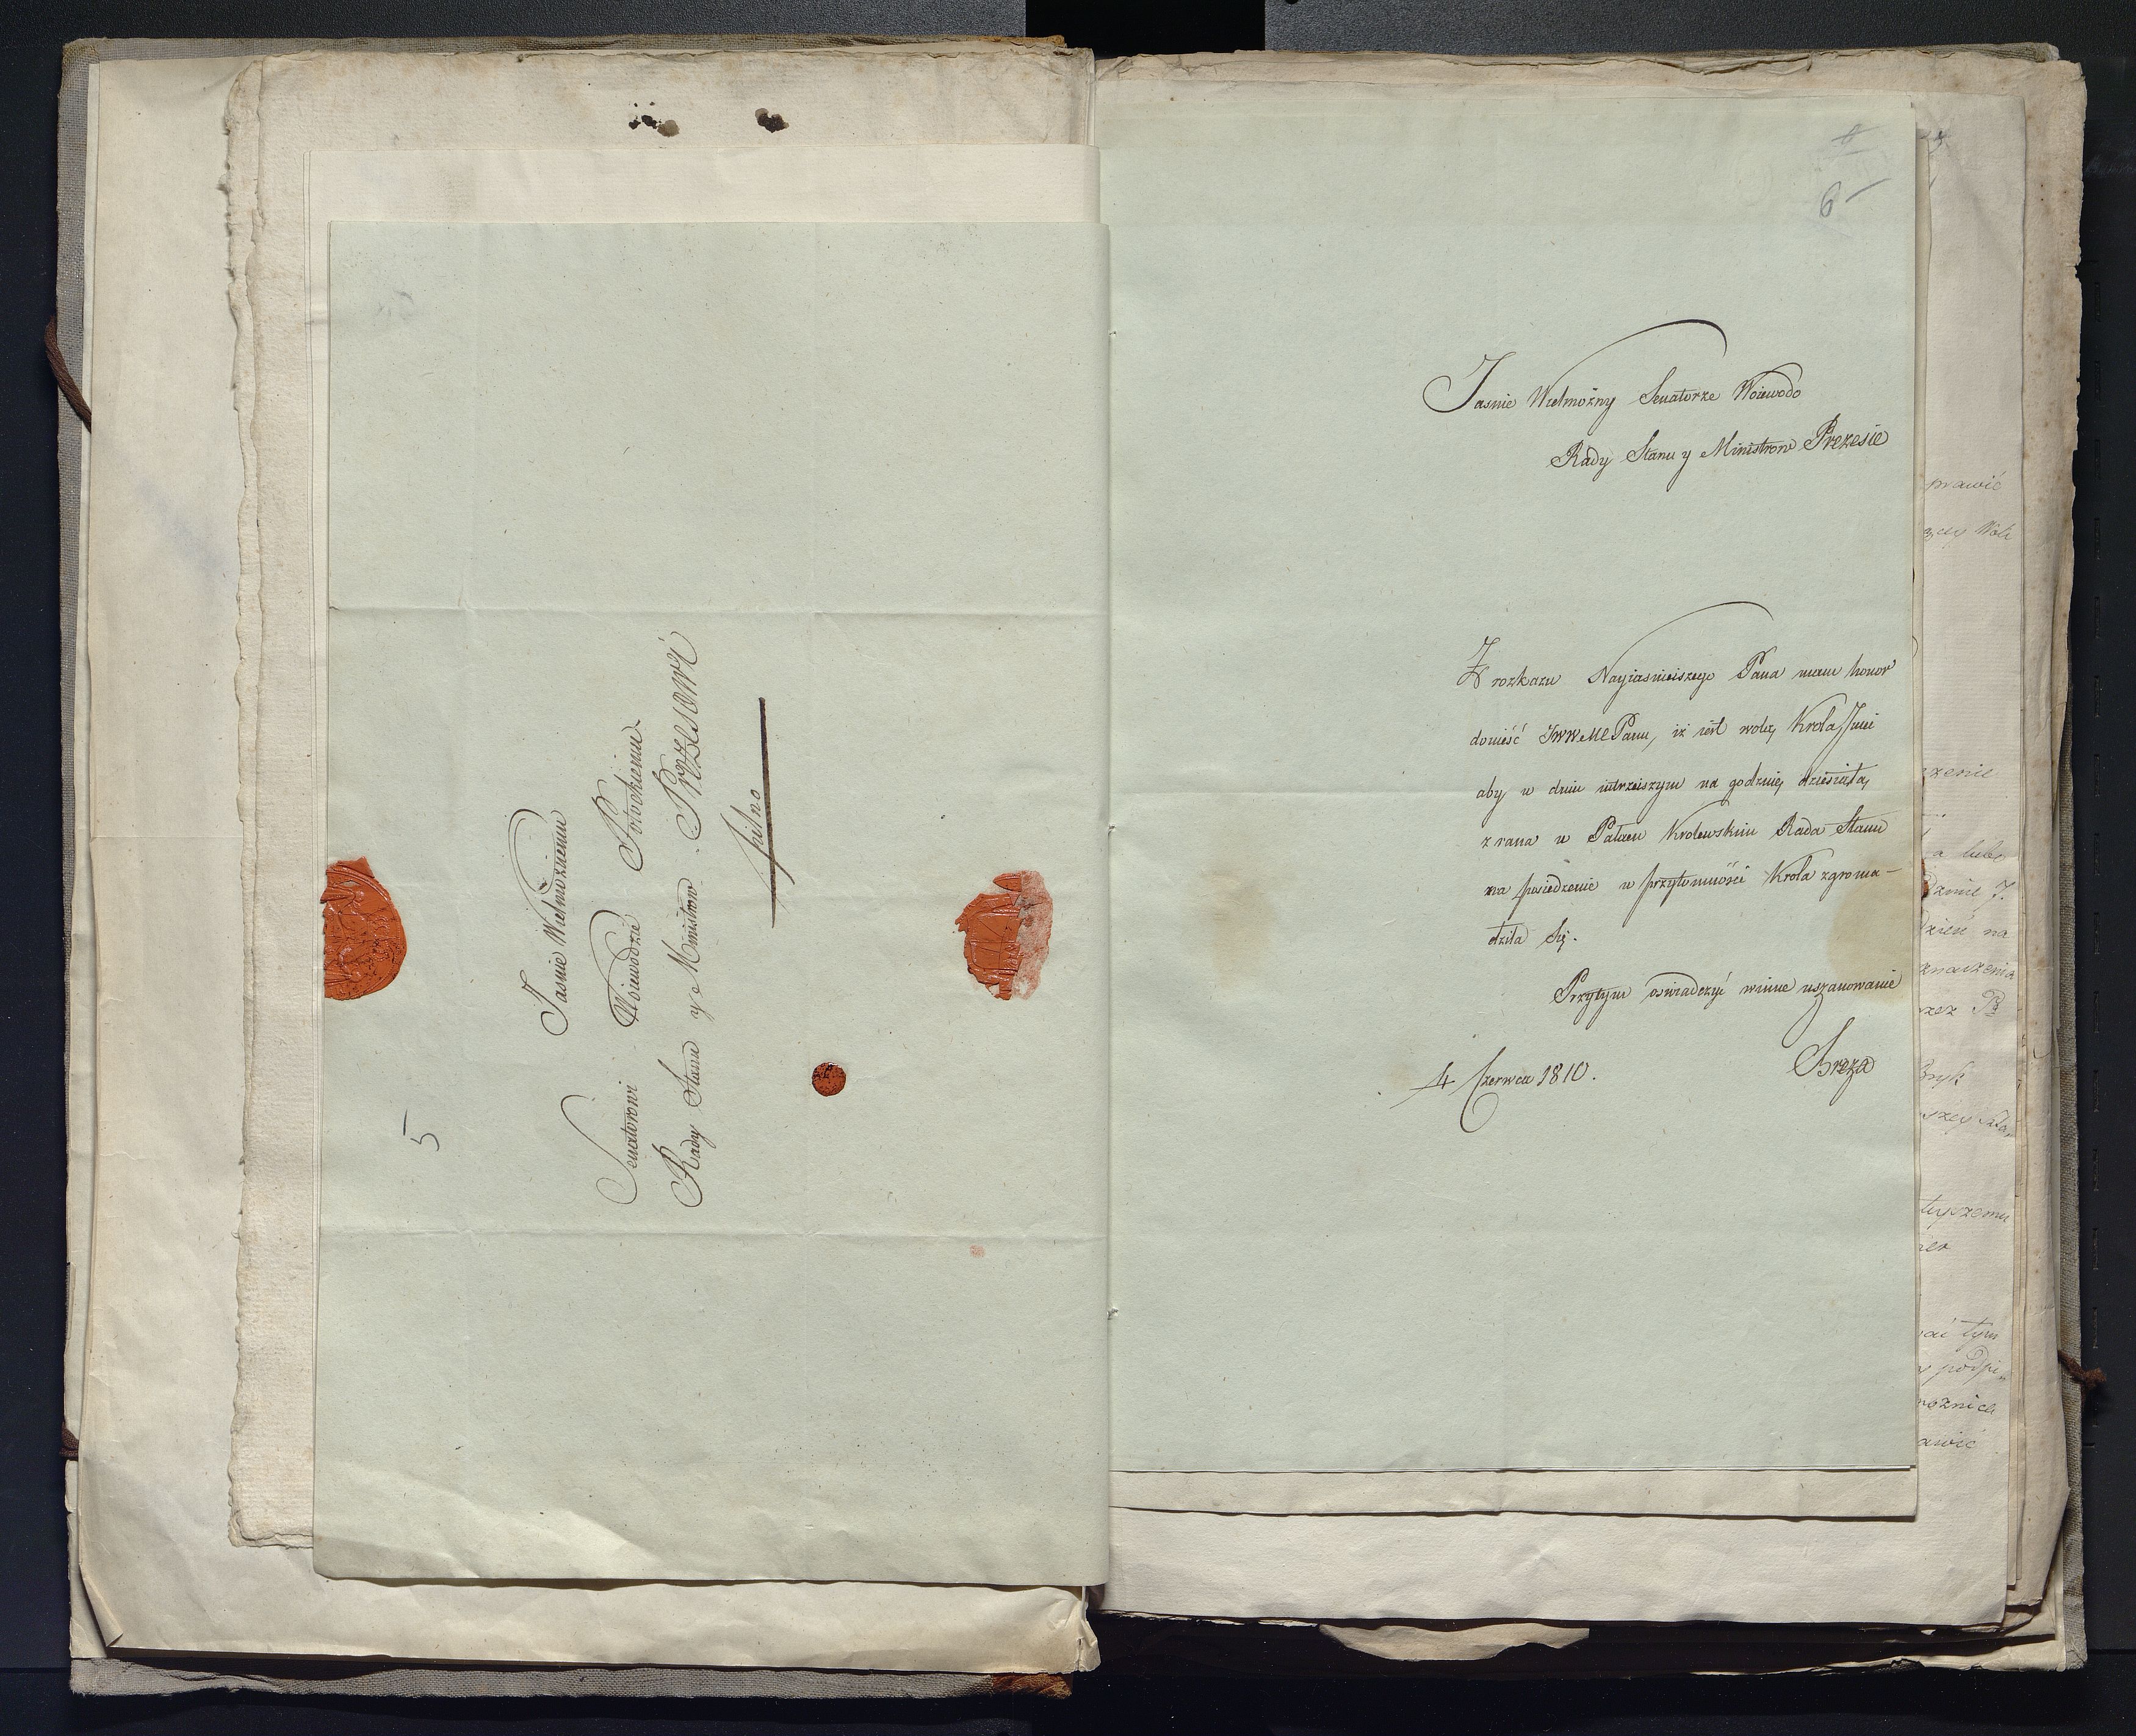 5
Jasnie Wielmożnemu
Senatorowi Woiewodzie Potockiemu
Rady Stanu y Ministrow Prezesowi
pilno
6
Jasnie Wielmożny Senatorze Woiewodo
Rady Stanu y Ministrow Prezesie
Z rozkazu Nayiasnieiszego Pana mam honor
donieść JWWMPanu, iż iest wolą Krola Jmci
aby w dniu iutrzeiszym na godzinę dziesiątą
z rana w Pałacu Krolewskim Rada Stanu
na posiedzenie w przytomności Krola zgroma-
dziła się.
Przytym oświadczyć winne uszanowanie
4 Czerwca 1810.
Breza
prawić
zenie
a lubo
dzień na
znaczenia
tyczemu
tym
podpi
możnich
awić